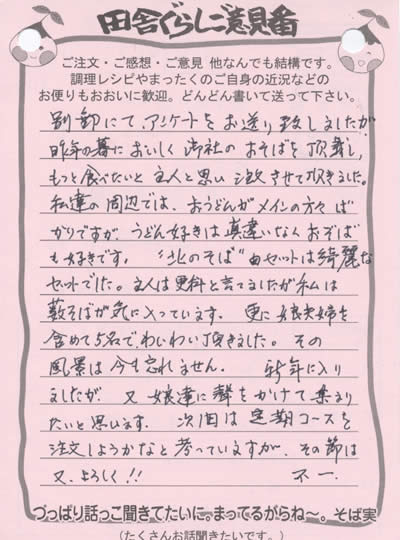 田舎ぐらしご意見番
ご注文・ご感想・ご意見 他なんでも結構です。
調理レシピやまったくのご自身の近況などの
お便りもおおいに歓迎。どんどん書いて送って下さい。
別郵にて、アンケートをお送り致しましたが
昨年の暮においしく御社のおそばを頂戴し、
もっと食べたいと主人と思い注文させて頂きました。
私達の周辺では、おうどんがメインの方々ば
かりですが、うどん好きは真違いなくおそば
も好きです。 "北のそば" セットは綺麗な
セットでした。主人は更科と言てましたが私は
藪そばが気に入っています。 更に娘夫婦を
含めて5名で、わいわい頂きました。その
風景は今も忘れません。 新年に入り
ましたが、又娘達に聲をかけて集まり
たいと思います。 次回は定期コースを
注文しようかなと考っていますが、その節は
又、よろしく!! 不一
づっぱり話っこ聞きてたいに。まってるがらね〜。そば実
(たくさんお話聞きたいです。)